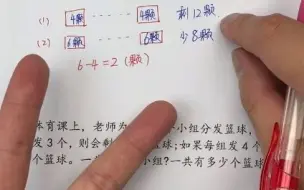 (1) 4颗 ---- 4颗 剩12颗
(2) 6颗 ---- 6颗 少8颗
6-4=2(颗)
体育课上,老师为 小组分发篮球,
发3个,则会剩 球;如果每组发4个
个篮球。一 小组?一共有多少个篮球